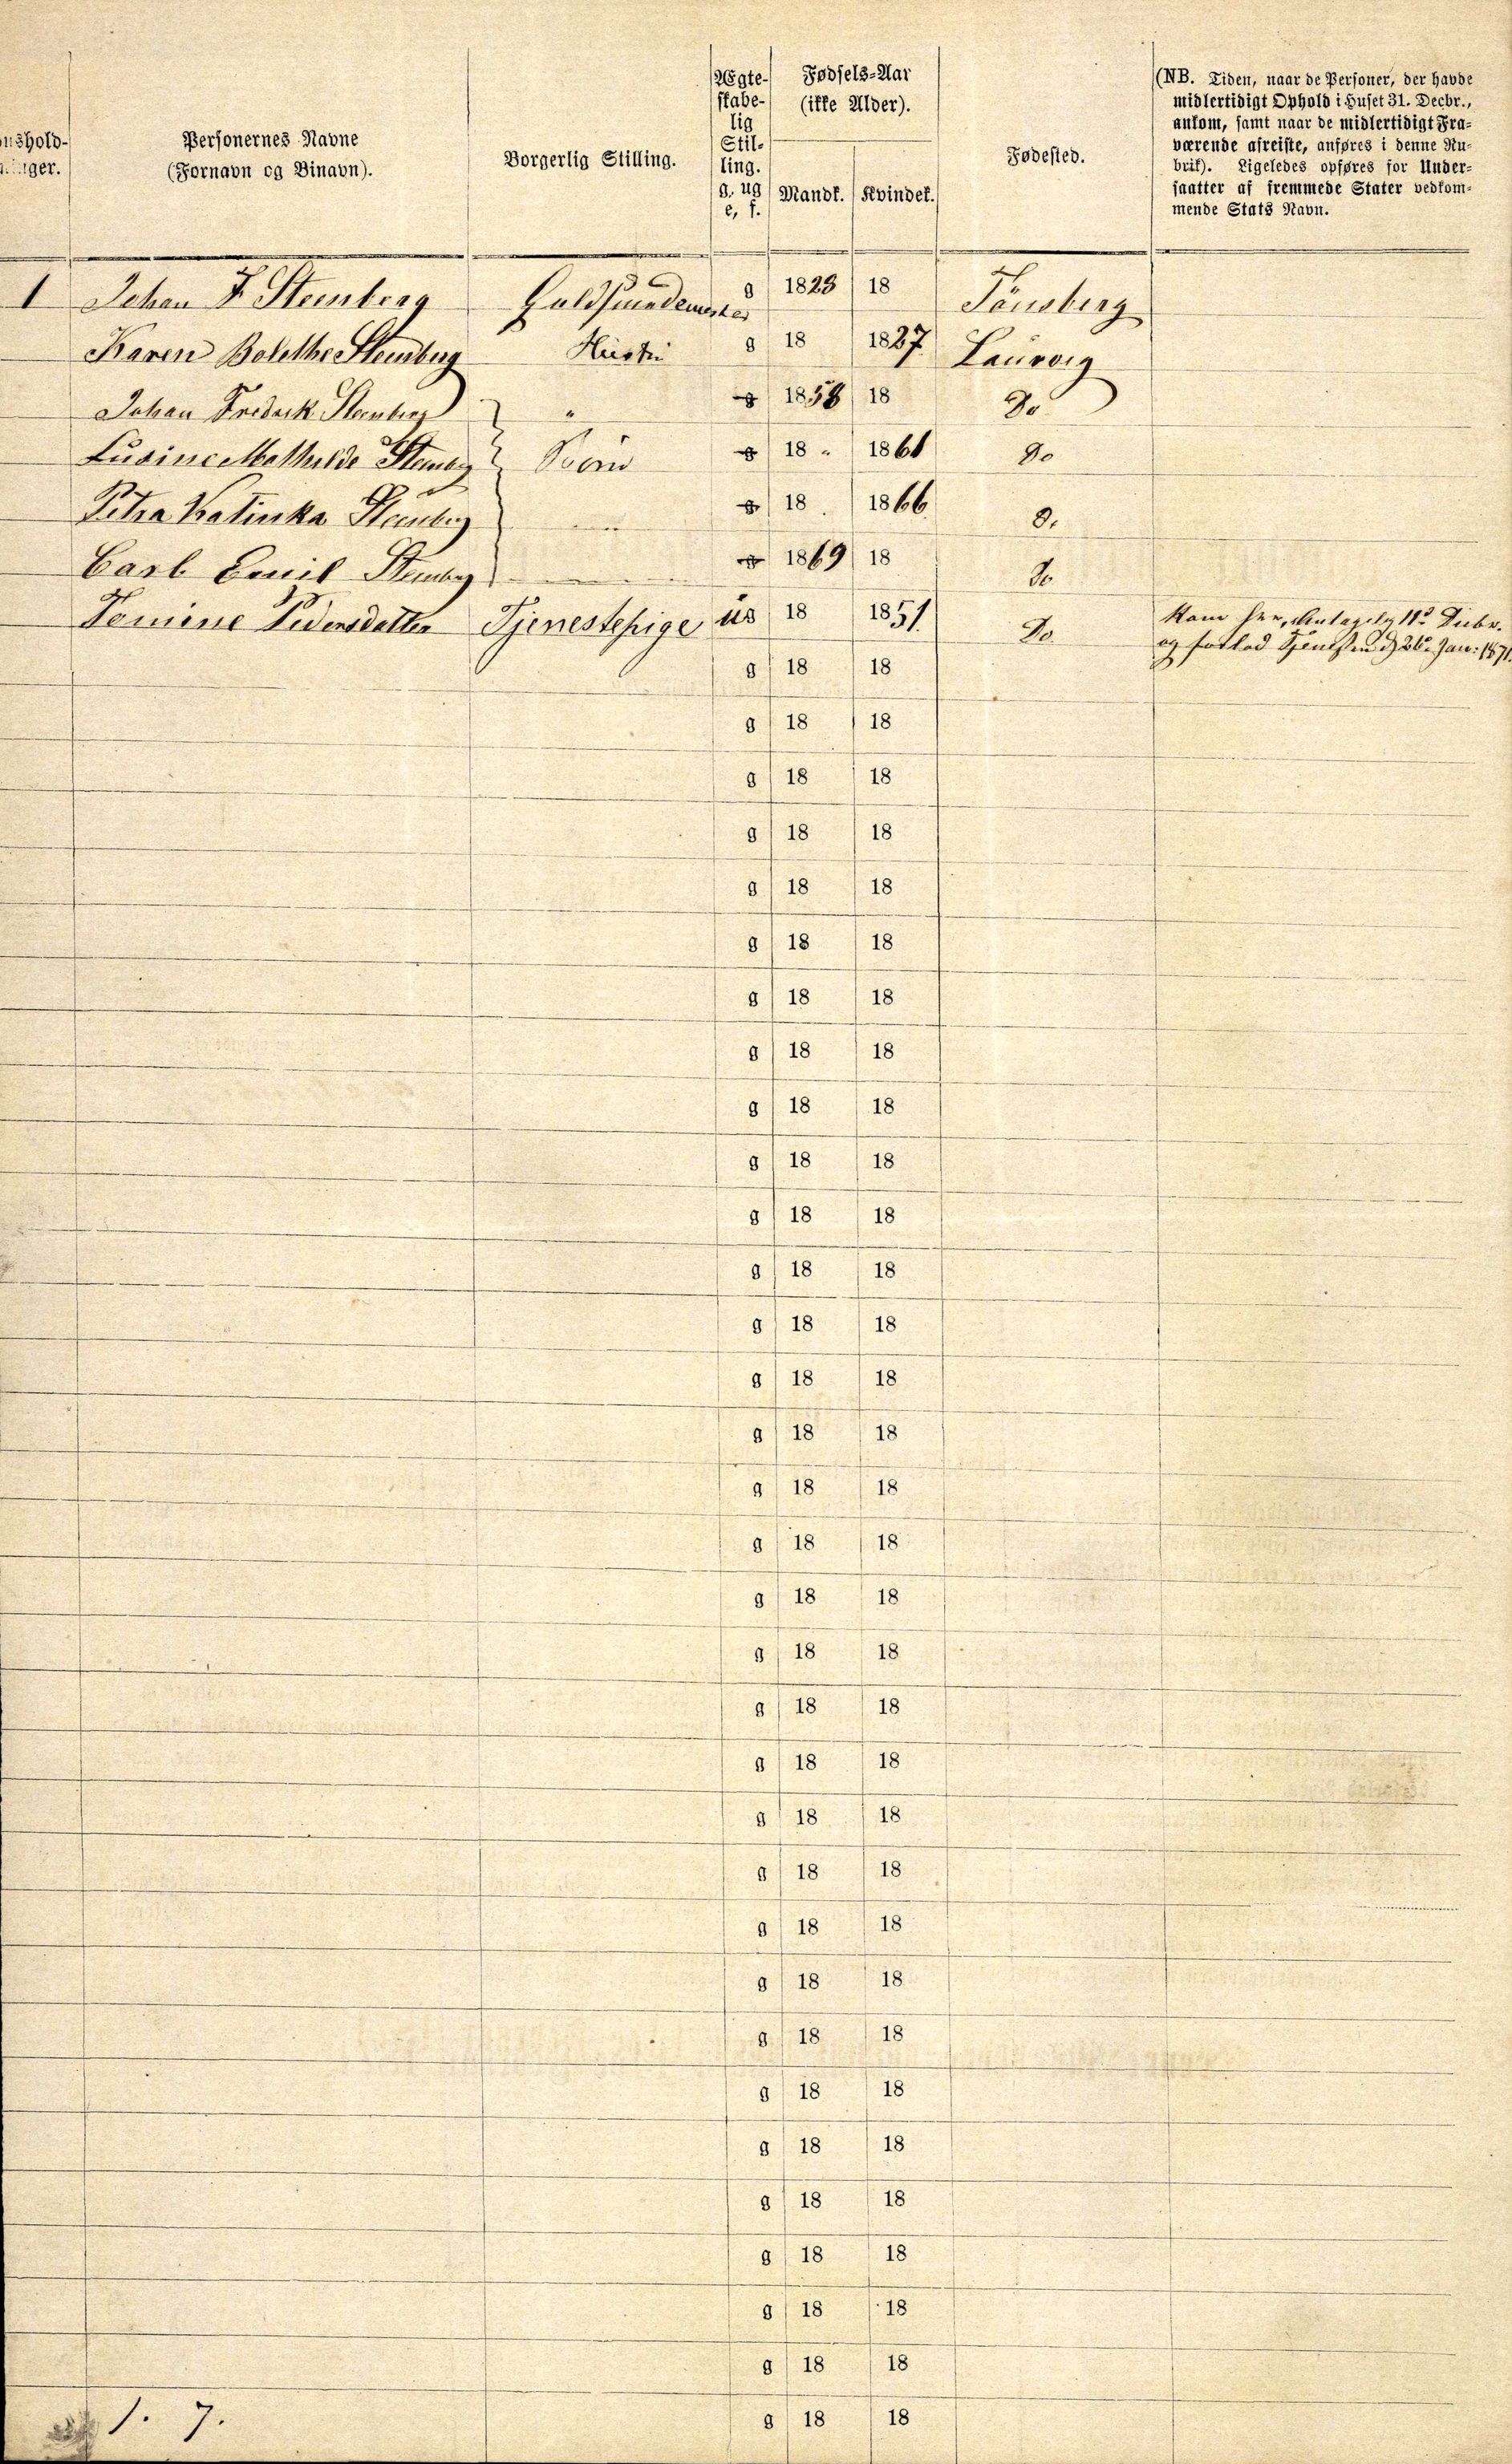 Personernes Navne
(Fornavn og Binavn).
Borgerlig Stilling.
Ægte-
skabe-
lig
Stil-
ling.
g, ug
e, f.
Fødsels-Aar
(ikke Alder).
Mandk. Kvindek.
Fødested.
(NB. Tiden, naar de Personer, der havde
midlertidigt Ophold i Huset 31. Decbr.,
ankom, samt naar de midlertidigt Fra-
værende afreiste, anføres i denne Ru-
brik). Ligeledes opføres for Under-
saatter af fremmede Stater vedkom-
mende Stats Navn.
1 Johan F. Steenberg Guldsmedemester g 1823 18 Tönsberg
Karen Bolethe Steenberg Hustru g 18 1827 Laurvig
Johan Fredrik Steenberg " g 1858 18 Do
Lusine Mathilde Steenberg Børn g 18 " 1861 Do
Petra Katinka Steenberg g 18 1866 Do
Carl Emil Steenberg g 1869 18 Do
Tomine Pedersdatter Tjenestepige ug 18 1851 Do Kom her, 11te Decbr.
og forlod Tjenesten d 26de Jan: 1871.
g 18 18
g 18 18
g 18 18
g 18 18
g 18 18
g 18 18
g 18 18
g 18 18
g 18 18
g 18 18
g 18 18
g 18 18
g 18 18
g 18 18
g 18 18
g 18 18
g 18 18
g 18 18
g 18 18
g 18 18
g 18 18
g 18 18
g 18 18
g 18 18
g 18 18
g 18 18
g 18 18
g 18 18
g 18 18
g 18 18
g 18 18
g 18 18
g 18 18
1. 7.